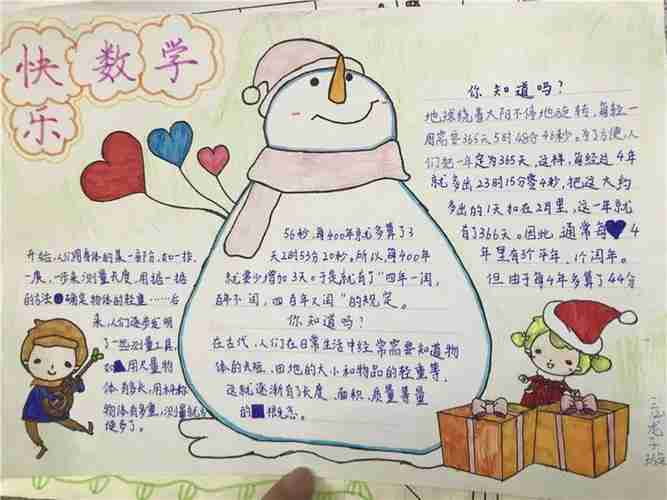 快 数 学
乐
你知道吗？
地球绕着太阳不停地旋转，每转一
周需要365天5时48分46秒。为了方便，人
们把一年定为365天，这样，每经过4年
就多出23时15分零4秒，把这大约
多出的1天加在2月里，这一年就
有了366天。因此，通常每4
年里有3个平年，1个闰年。
但由于每4年多算了44分
56秒，每400年就多算了3
天2时53分20秒，所以，每400年
就要少增加3天。于是就有了“四年一闰，
百年不闰，四百年又闰”的规定。
你知道吗？
在古代，人们在日常生活中经常需要知道物
体的长短、田地的大小和物品的轻重等，
这就逐渐有了长度、面积、质量等量
的概念。
开始，人们用身体的某一部分，如一拃、
一庹、一步来测量长度，用掂一掂
的方法确定物体的轻重……后
来，人们逐步发明
了一些测量工具，
如用尺量物
体有多长，用秤称
物体有多重，测量就方
便多了。